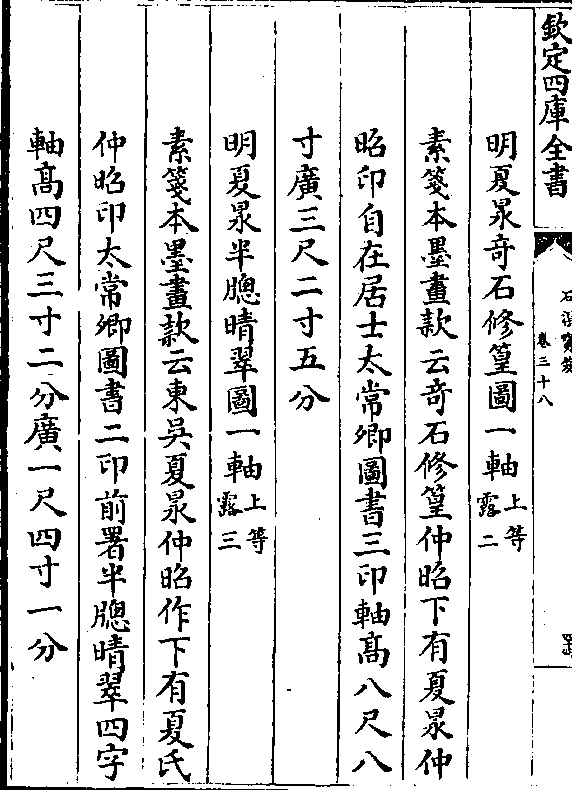 欽定四庫全書
卷三十八
明夏㫤竒石修篁圖一軸上等露二
素箋本墨畫款云竒石修篁仲昭下有夏㫤仲
昭印自在居士太常卿圖書三印軸髙八尺八
寸廣三尺二寸五分
明夏㫤半牕晴翠圖一軸上等露三
素箋本墨畫款云東吳夏㫤仲昭作下有夏氏
仲昭印太常卿圖書二印前署半牕晴翠四字
軸髙四尺三寸二分廣一尺四寸一分